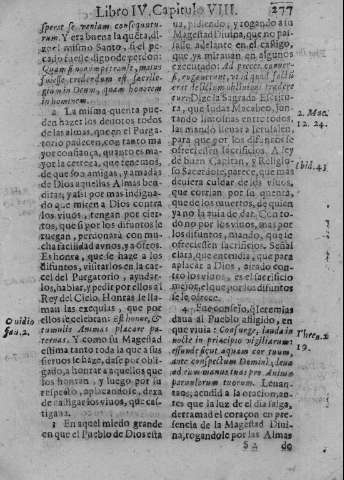 Libro IV. Capitulo VIII. 277
sperat se veniam consequutu-
rum. Y era buena la queta, di-
go el mismo Santo, si el pe-
cado fuesse digno de perdon:
in hominem.
2 La misma quenta pue-
den hazer los devotos todos
de las almas, que en el Purga-
torio padecen, con tanto ma-
yor confiança, quanto es ma-
yor la certeza, que tenemos,
de que son amigas, y amadas
de Dios aquellas Almas ben-
ditas, y assi por mas indigna-
do que miren a Dios contra
los vivos, tengan por cier-
to, que si por los difuntos le
ruegan, perdonarà con mu-
cha facilidad a vnos, y a otros.
Es honra, que se haze a los
difuntos, visitarlos en la car-
cel del Purgatorio, ayudar-
los, hablar, y pedir por ellos al
Rey del Cielo. Honras se lla-
man las exequias, que por
ellos se celebran: est honor, &
tumulis Animas placare pa-
ternas. Y como su Magestad
estima tanto toda la que a sus
siervos se haze, dase por obli-
gado, a honrar a aquellos que
los honran, y luego por su
respecto, aplacandose, dexa
de castigar los vivos, que cas-
tigava.
3 En aquel miedo grande
en que el Pueblo de Dios esta
Ovidio
fau. 2.
va, pidiendo, y rogando a su
Magestad Divina, que no pas-
sasse adelante en el castigo,
que ya miravan en algunos
executado: Ad preces conver-
si, rogaverunt, vt id quod factũ
erat delictum oblivioni tradere-
tur: Dize la Sagrada Escritu-
ra, que Iudas Macabeo, jun-
tando limosnas entre todos,
las mandò llevar a Ierusalen,
para que por los difuntos se
ofreciessen sacrificios. A ley
de buen Capitan, y Religio-
so Sacerdote, parece, que mas
deviera cuidar de los vivos,
que corrian por su quenta,
que de los muertos, de quien
ya no la avia de dar. Con to-
do no por los vivos, mas por
los difuntos, mandò, que se
ofreciessen sacrificios. Señal
clara, que entendia, que para
aplacar a Dios, ayrado con-
tra los vivos, es el sacrificio
mejor, el que por los difuntos
se le ofrece.
4 Este consejo, q̃ Ieremias
dava al Pueblo afligido, en
que vivia: Consurge, lauda in
nocte in principio vigiliarum:
effunde sicut aquam cor tuum,
ante conspectum Domini, leva
ad eum manus tuas pro Animis
parvulorum tuorum. Levan-
taos, acudid a la oracion, an-
tes que la luz de el dia salga,
derramad el coraçon en pre-
sencia de la Magestad Divi-
na, rogandole por las Almas
2. Mac.
12. 24.
Ibid. 43
Thren. 2
19.
S 2 do